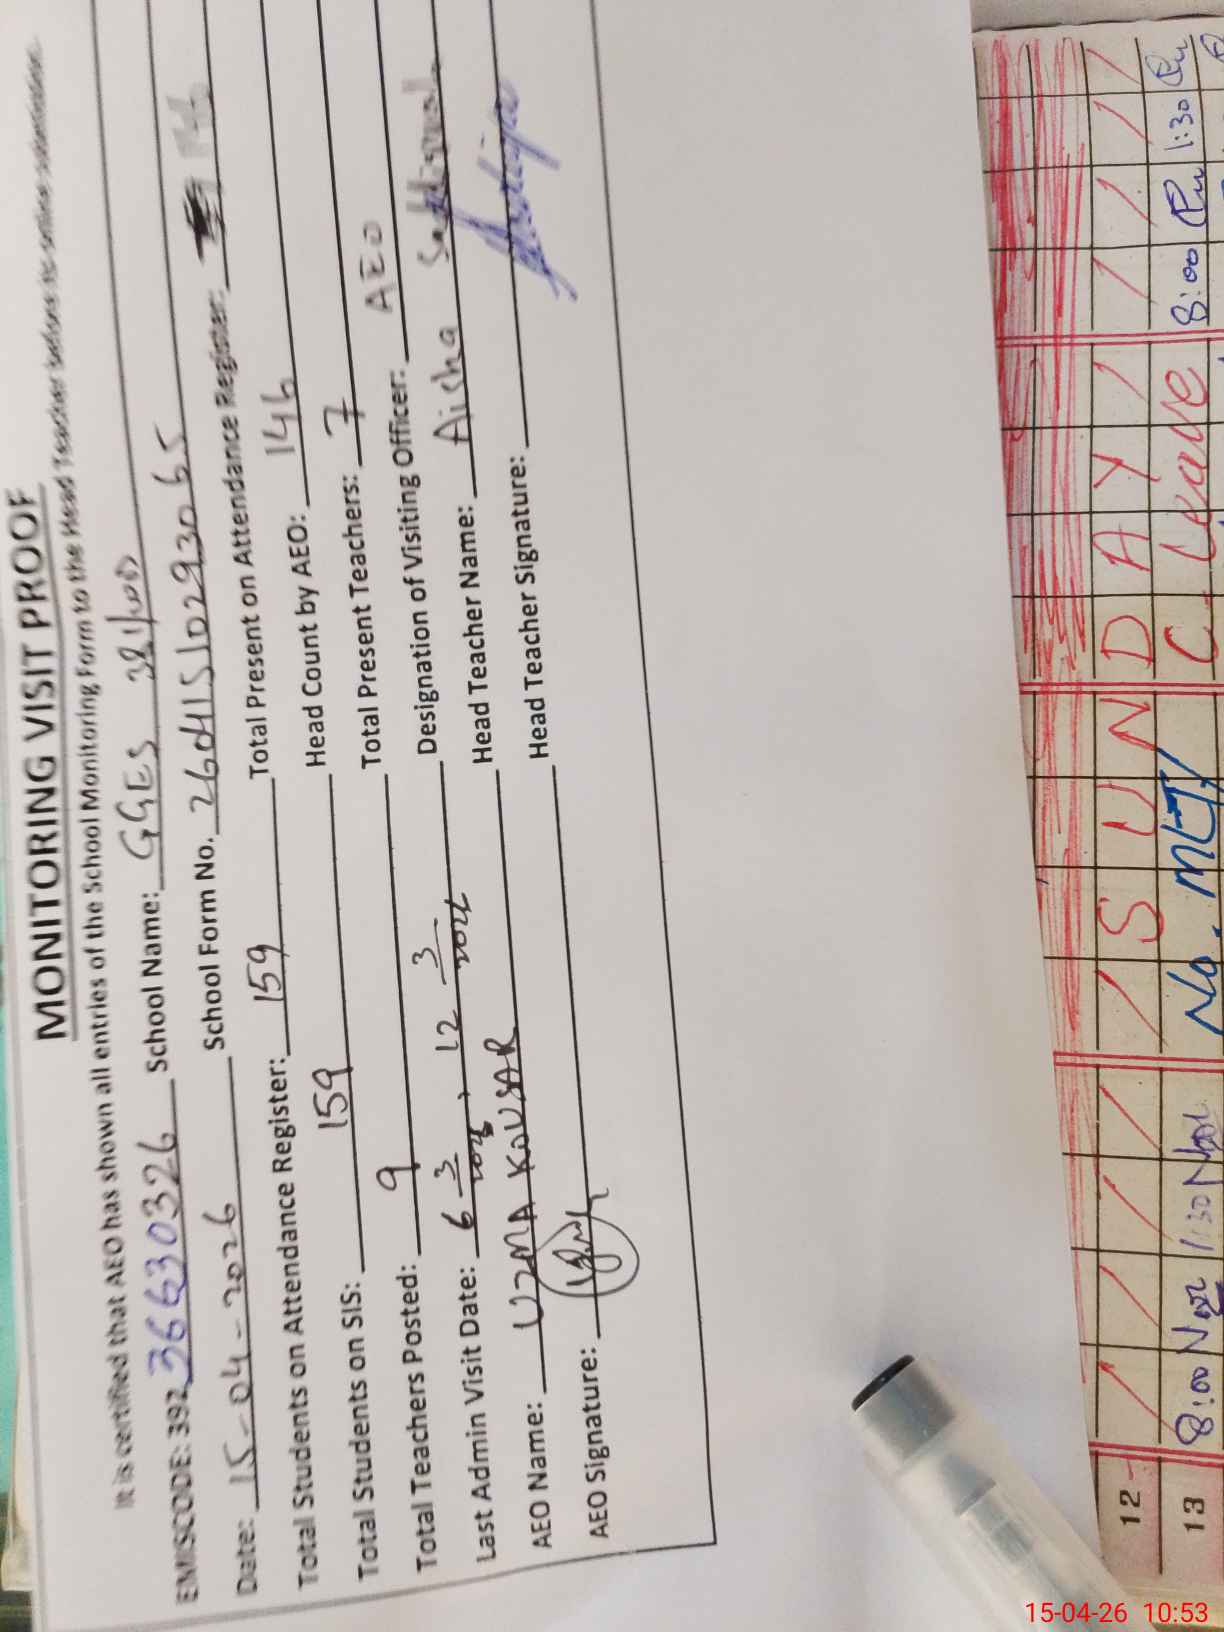 MONITORING VISIT PROOF
It is certified that AEO has shown all entries of the School Monitoring Form to the Head Teacher before the online submission.
EMISCODE: 392 36630326 School Name: GGES 381/WB
Date: 15-04-2026 School Form No. 26041510293065
Total Students on Attendance Register: 159 Total Present on Attendance Register: 146
Total Students on SIS: 159 Head Count by AEO: 146
Total Teachers Posted: 9 Total Present Teachers: 7
Last Admin Visit Date: 6 3, 12 3 Designation of Visiting Officer: AEO
AEO Name: UZMA KOUSAR Head Teacher Name: Aisha
AEO Signature: Head Teacher Signature:
12 SUNDAY
13 8:00 1:30 No. C. Leave 8:00 1:30
15-04-26 10:53